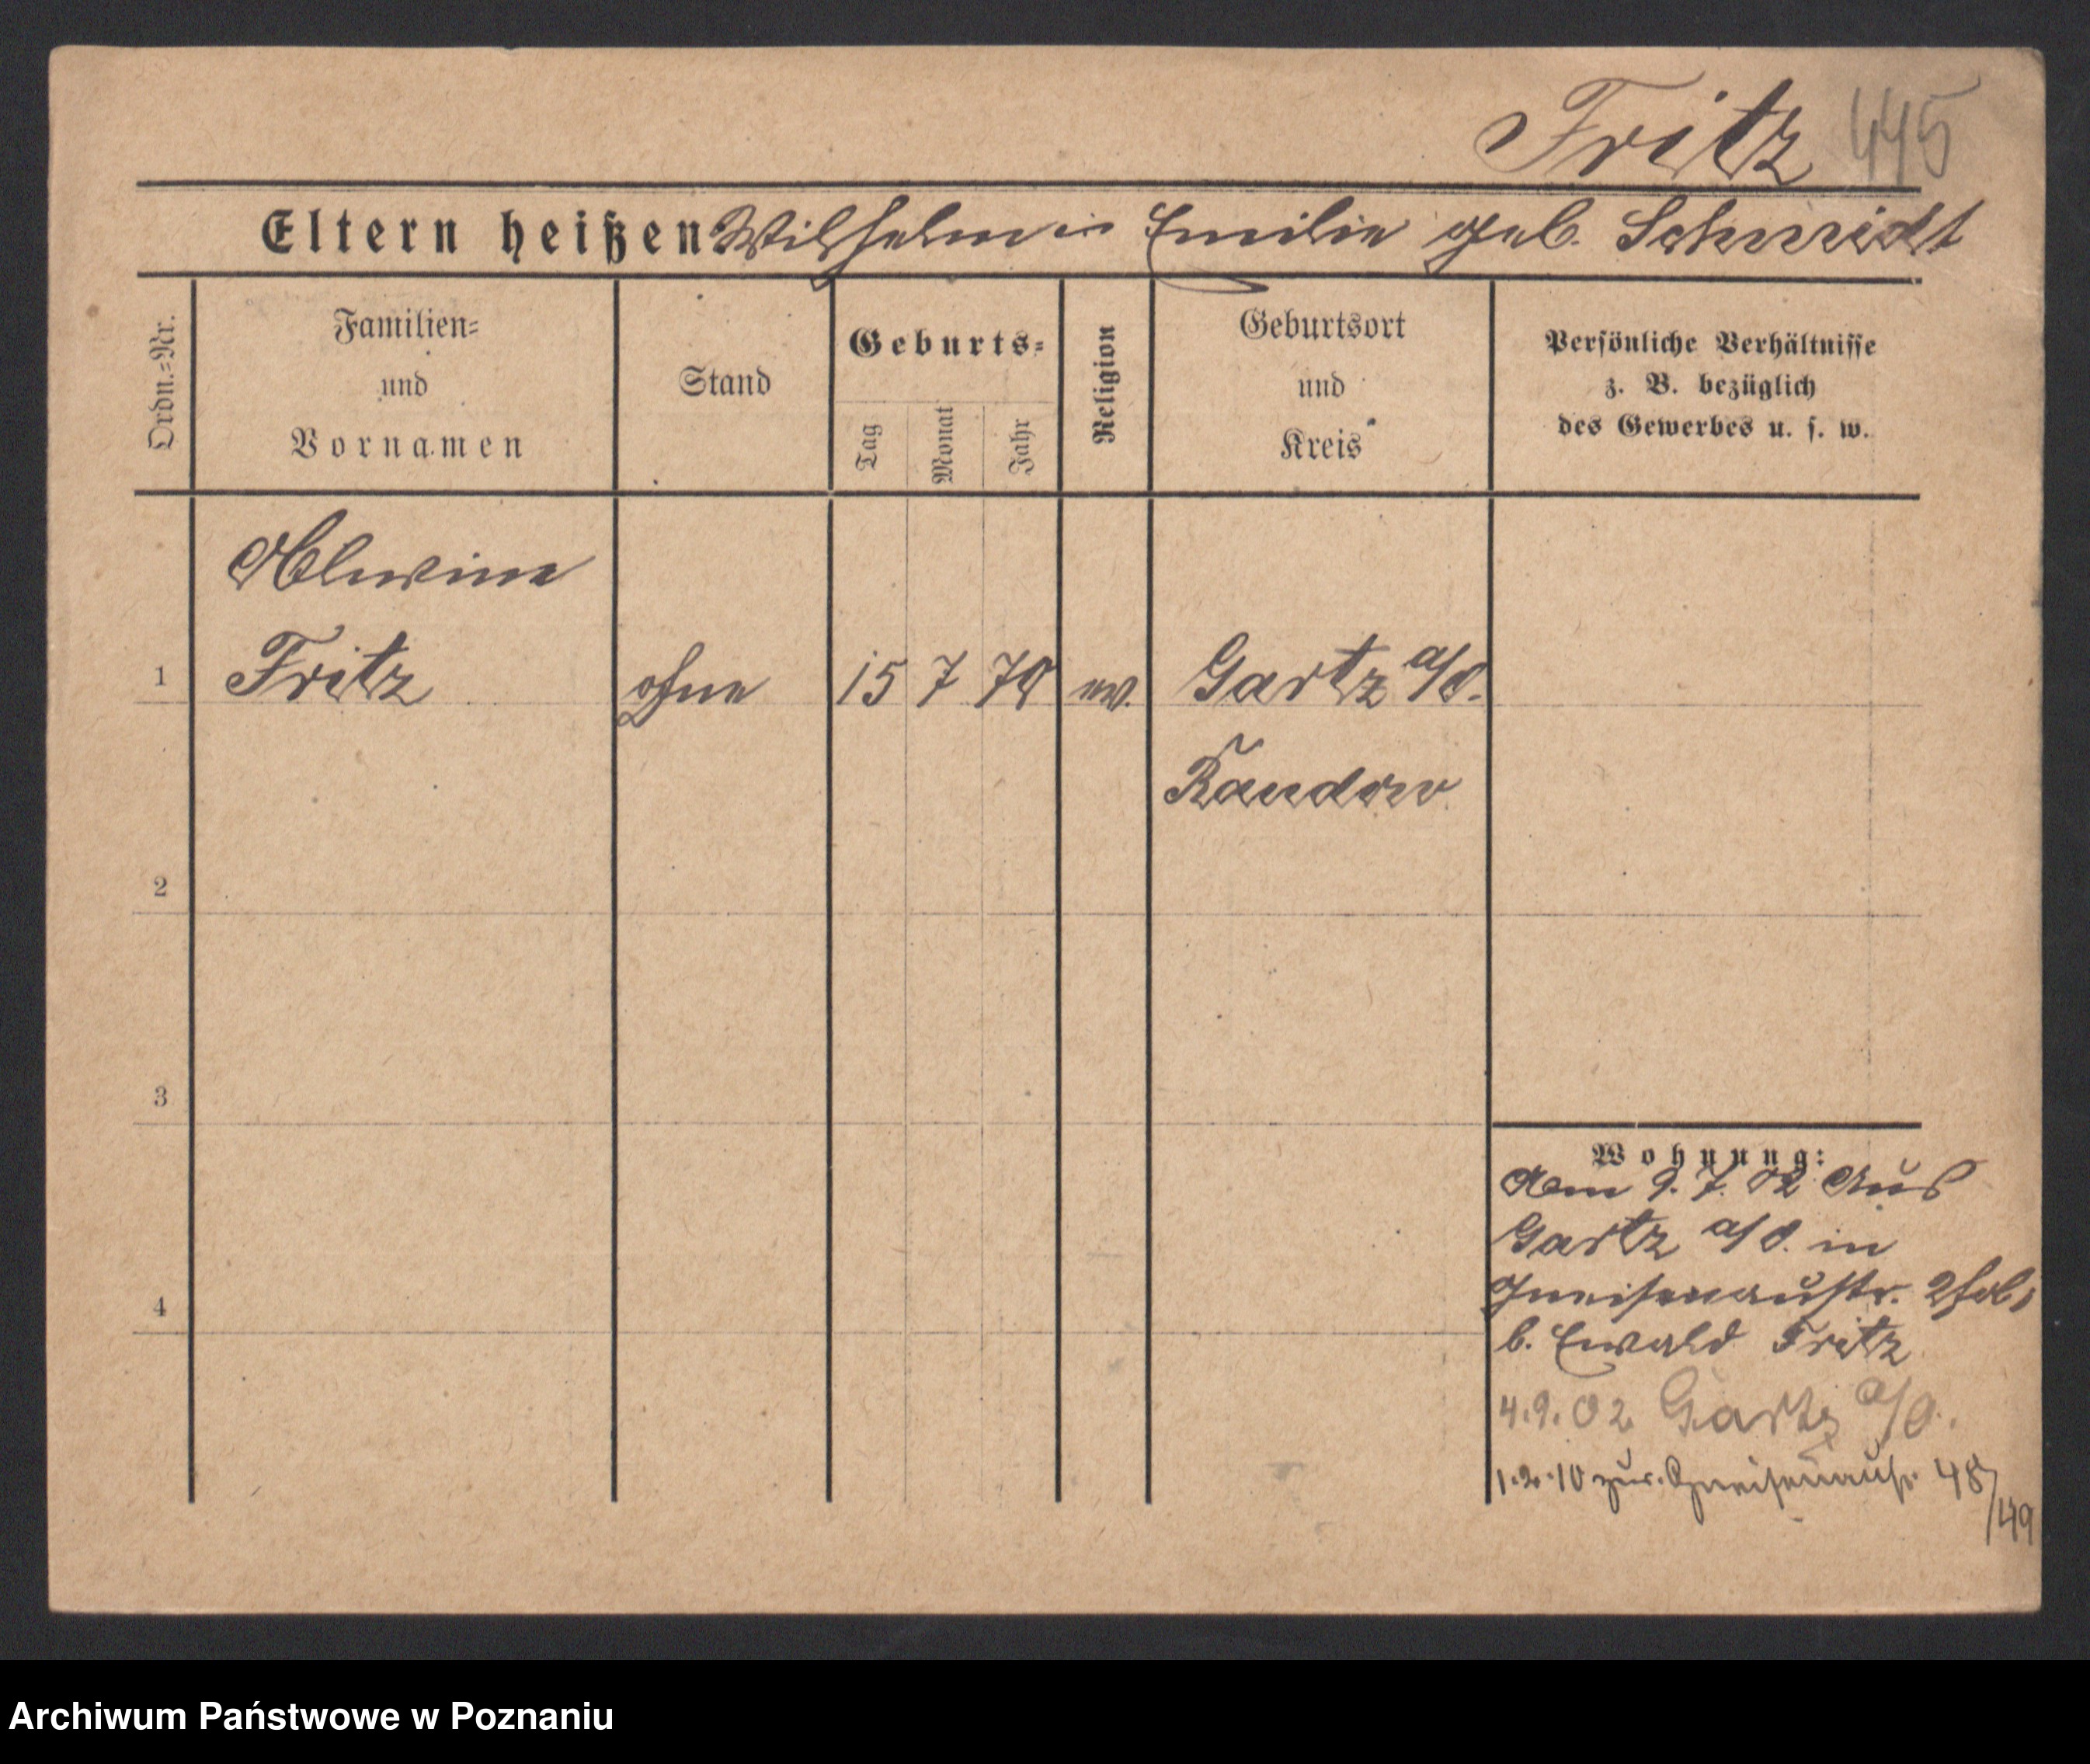 Fritz 445
Eltern heißen Wilhelm u Emilie geb. Schmidt
Ordn.-Nr.
Familien-
und
Vornamen
Stand
Geburts-
Tag
Monat
Jahr
Religion
Geburtsort
und
Kreis
Persönliche Verhältnisse
z. B. bezüglich
des Gewerbes u. s. w.
Alwine
1 Fritz ohne 15 7 70 ev. Gartz a/O.
Randow
2
3
4
Wohnung:
Am 9. 7. 02 Aus
Gartz a/O. in
Gneisenaustr.
b. Ewald Fritz
4.9.02 Gartz a/O.
1.2.10 zur. Gneisenaustr. 48/49
Archiwum Państwowe w Poznaniu